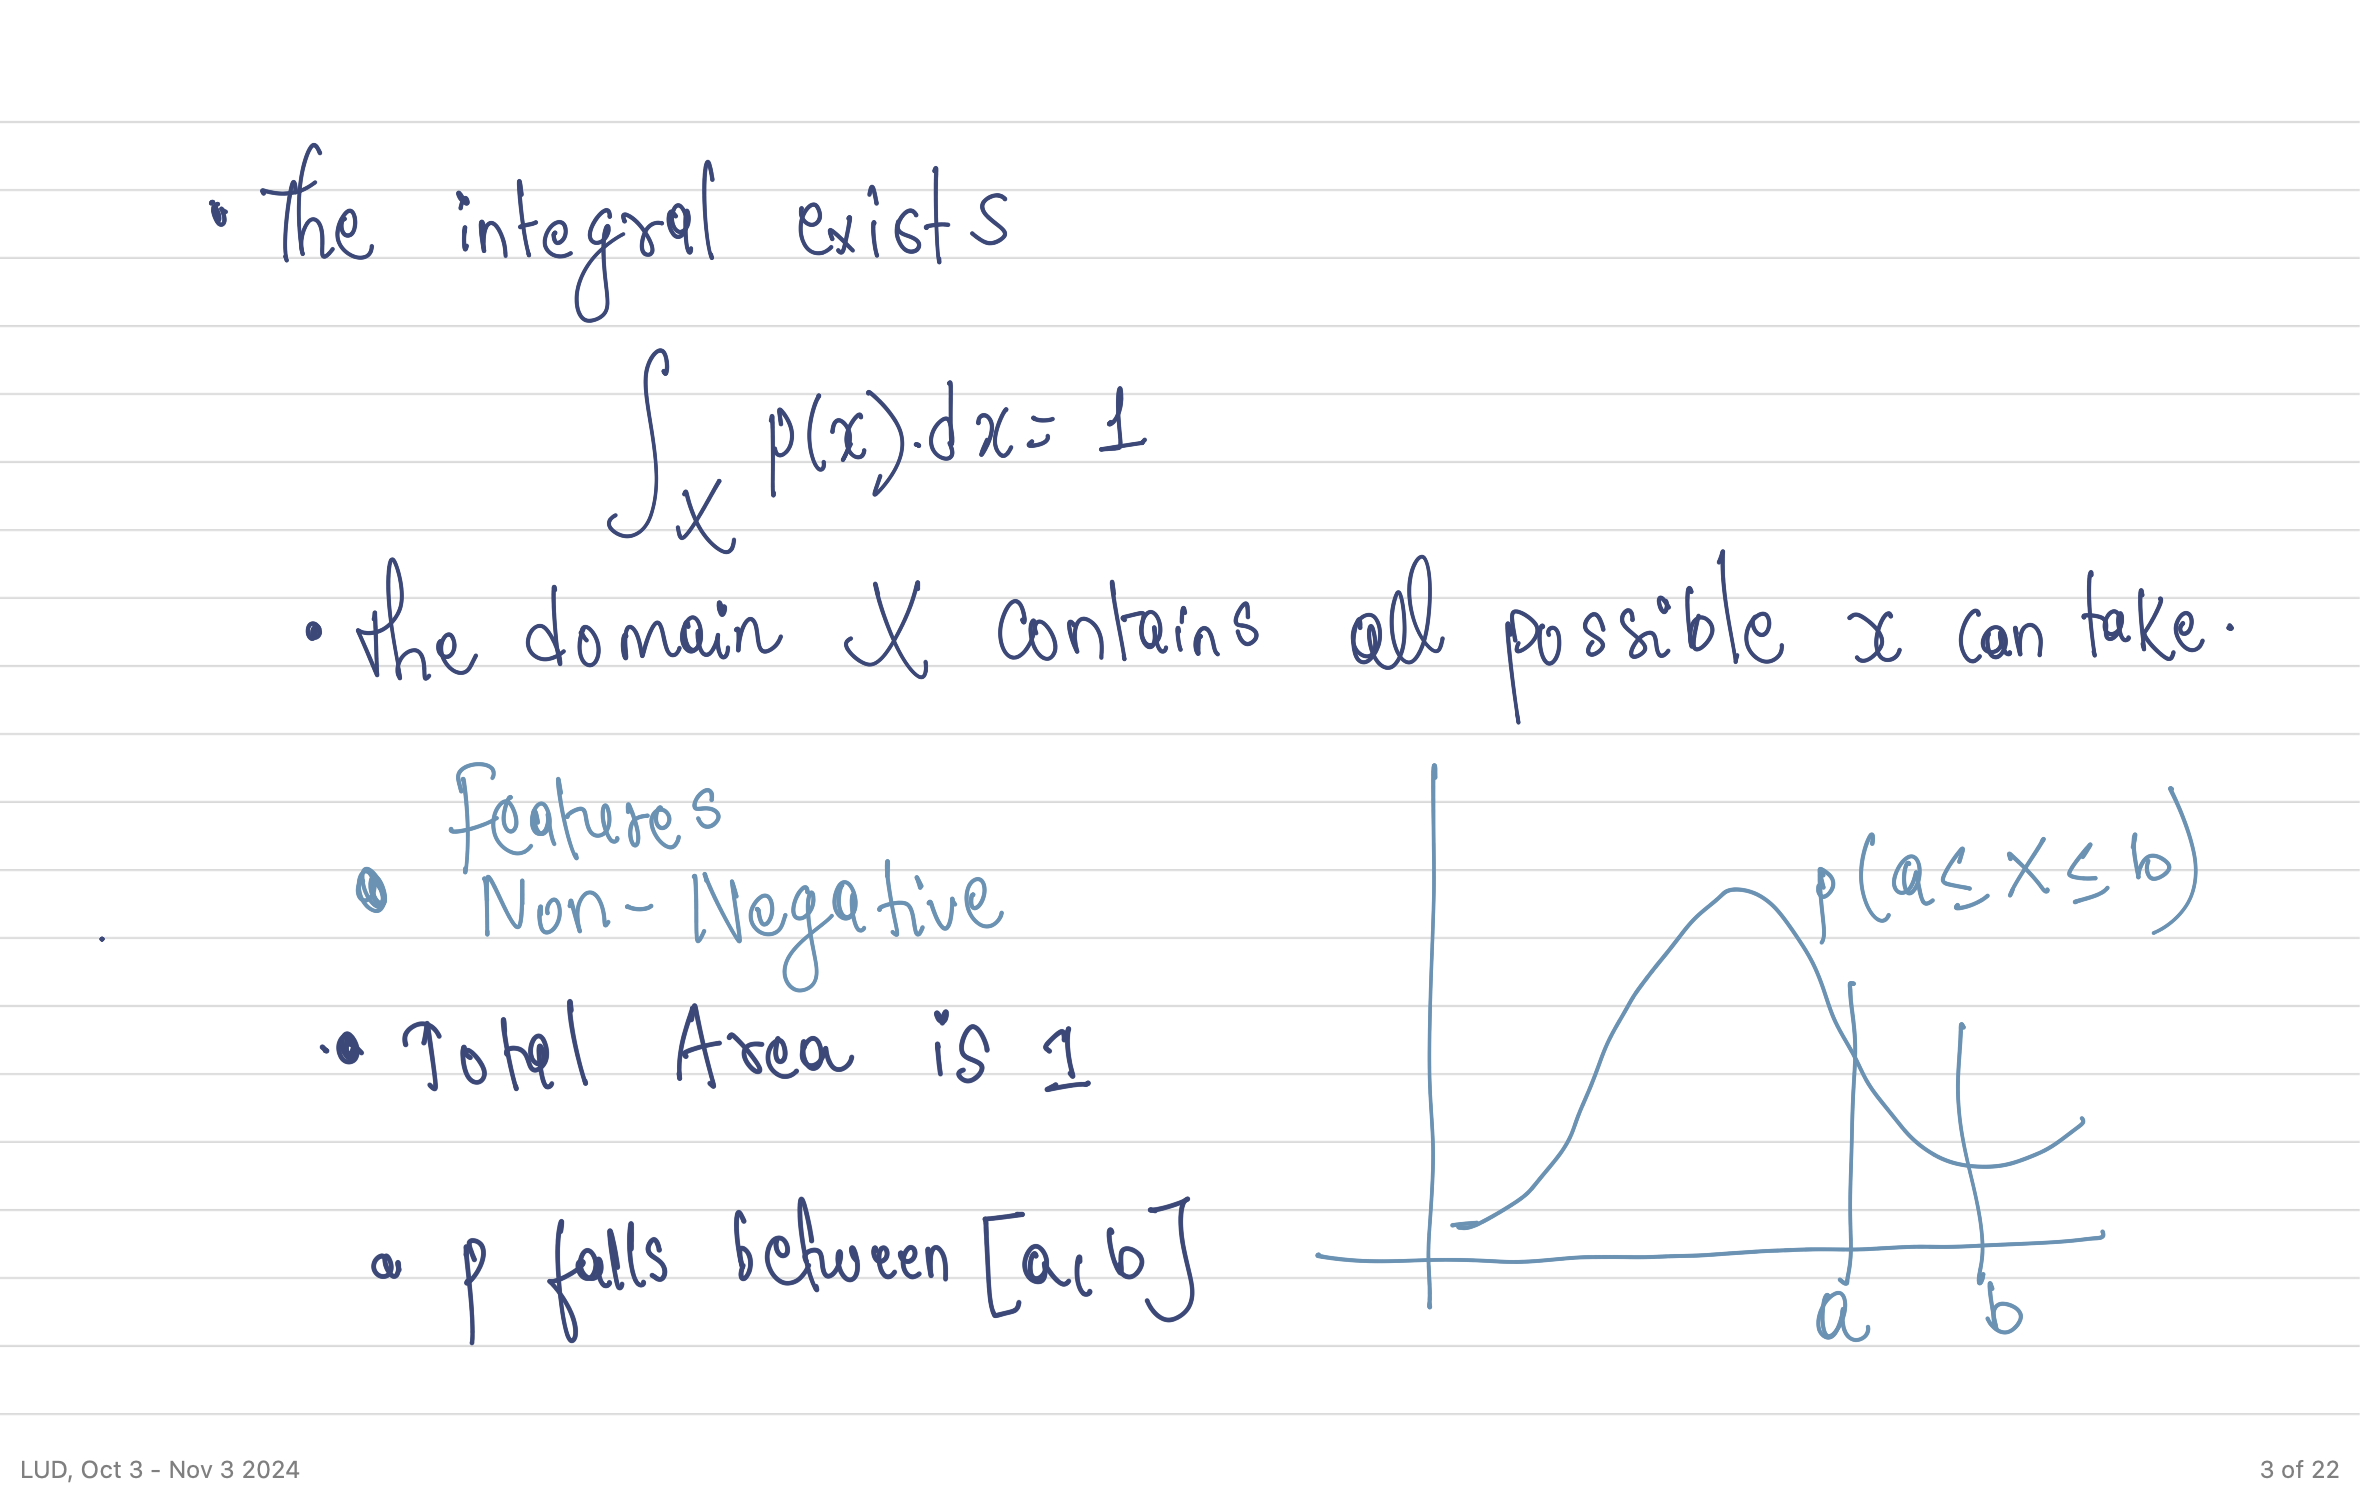 • The integral exists
∫_X p(x).dx = 1
• the domain X contains all possible x can take.
Features
• Non-Negative
• Total Area is 1
• p falls between [a,b]
p(a ≤ x ≤ b)
a b
LUD, Oct 3 - Nov 3 2024
3 of 22